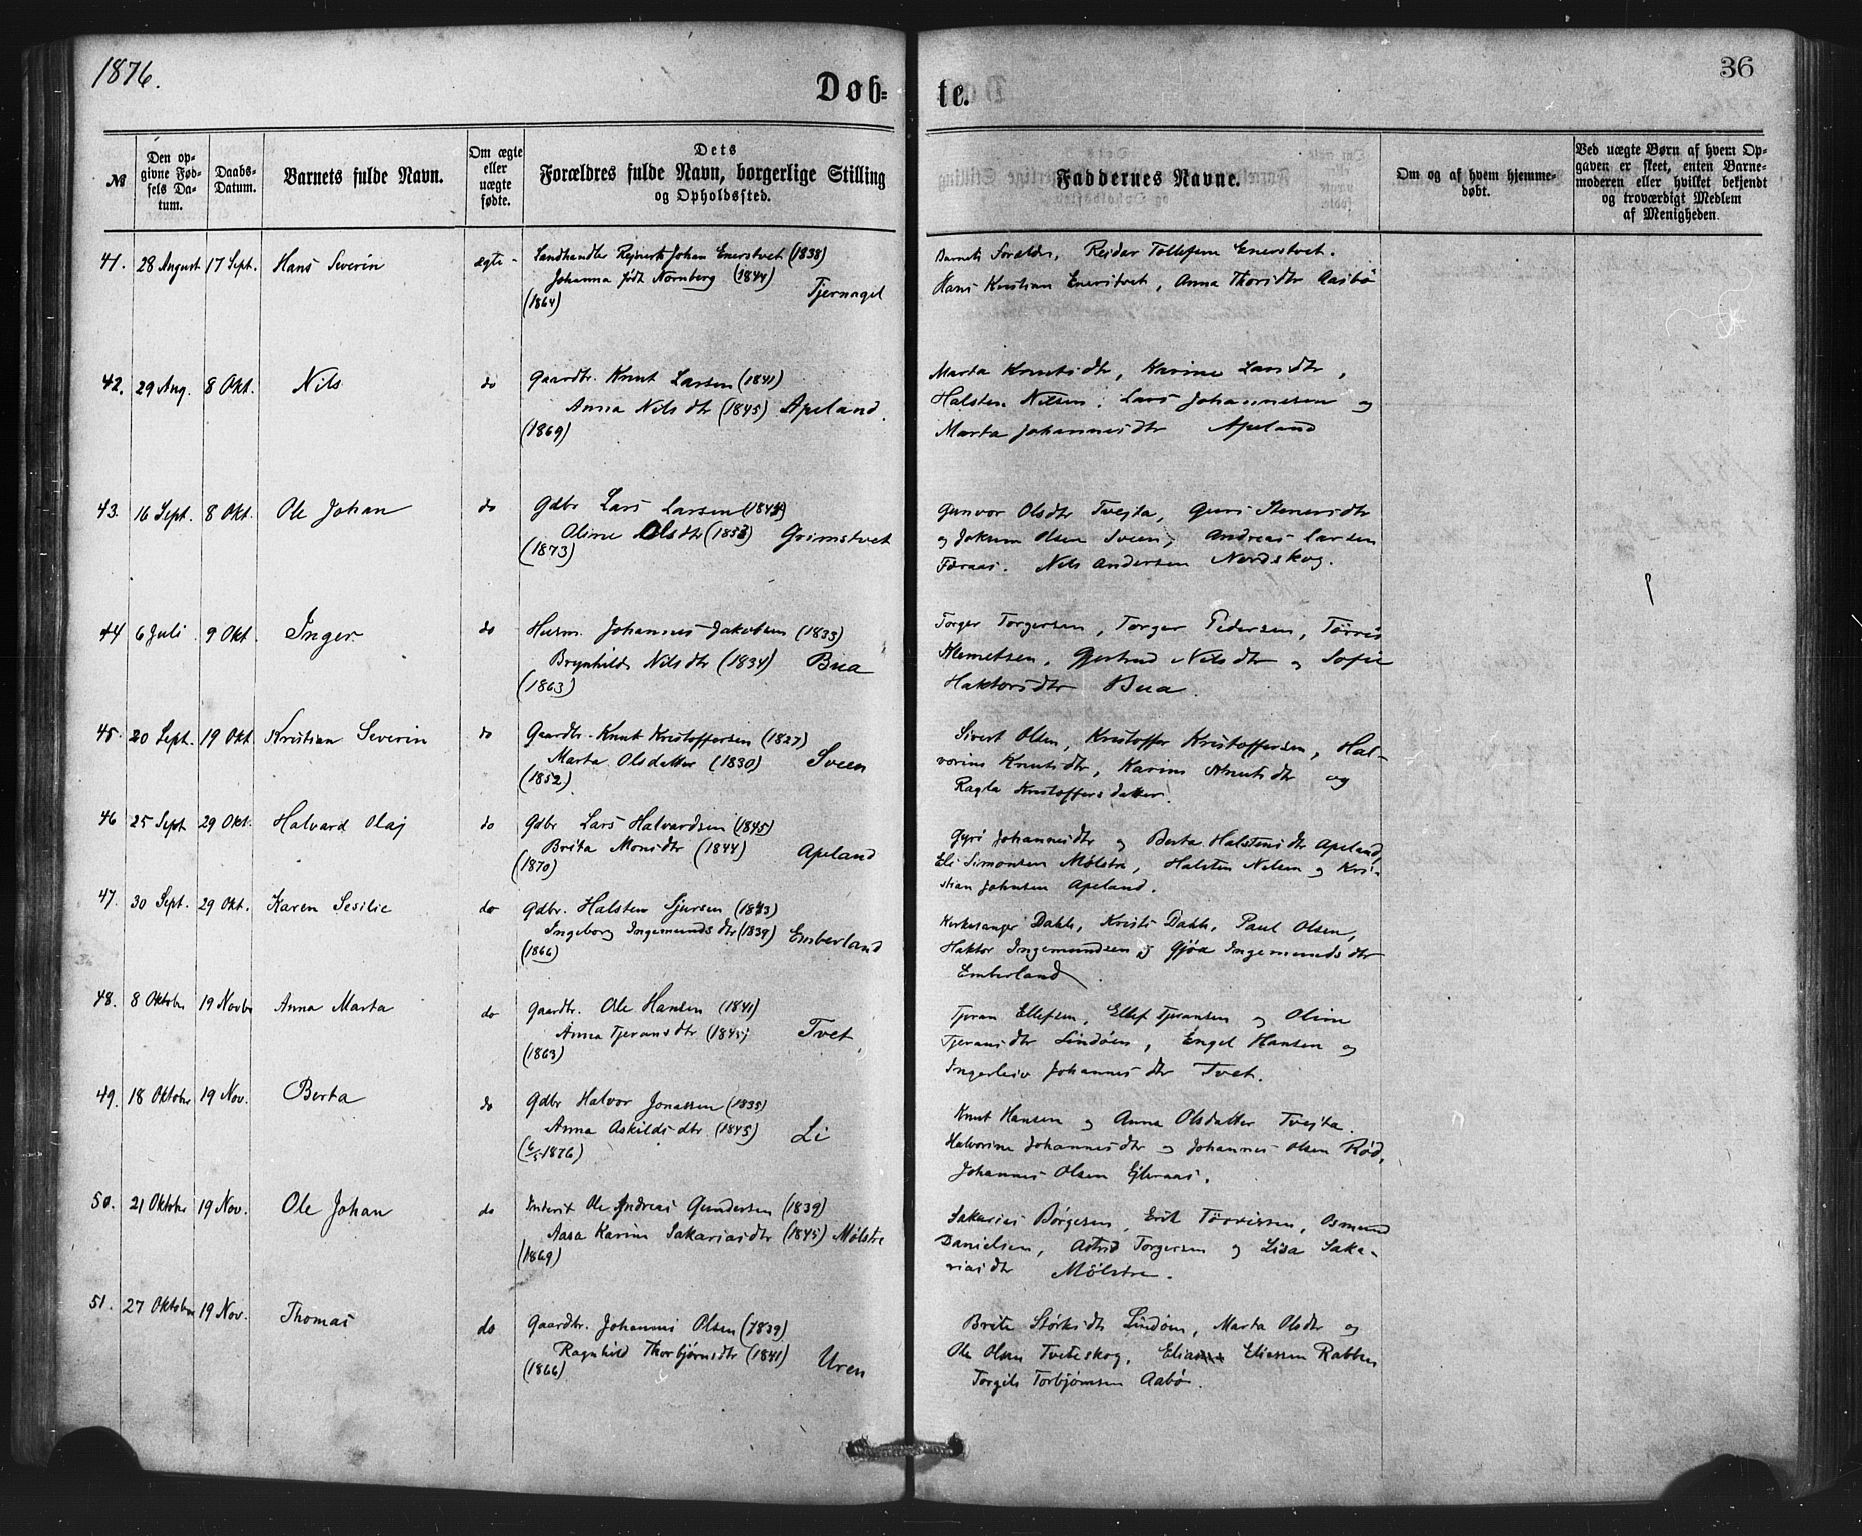 1876.
Døb=
te.
36
№
Den op-
givne Fød-
sels Da-
tum.
Daabs-
Datum.
Barnets fulde Navn.
Om ægte
eller
uægte
fødte.
Dets
Forældres fulde Navn, borgerlige Stilling
og Opholdssted.
Faddernes Navne.
Om og af hvem hjemme-
døbt.
Ved uægte Børn af hvem Op-
gaven er skeet, enten Barne-
moderen eller hvilket bekjendt
og troværdigt Medlem
af Menigheden.
41. 28 August 17 Sept. Hans Severin ægte Landhandler Rejnert Johan Enerstvet (1838)
Johanna født Nornberg (1844)
(1864) Tjernagel
Barnets Forældre, Reidar Tollefsen Enerstvet.
Hans Kristian Enerstvet, Anna Thorsdtr Aasbø
42. 29 Aug. 8 Okt. Nils do Gaardbr. Knut Larsen (1841)
Anna Nilsdtr (1845) Apeland.
(1869)
Marta Knutsdtr, Karine Larsdtr,
Halsten Nilsen, Lars Johannesen og
Marta Johannesdtr Apeland
43. 16 Sept. 8 Okt. Ole Johan do Gdbr Lars Larsen (1844)
Oline Olsdtr (1853) Grimstvet
(1873)
Gunvor Olsdtr Tvejta, Guri Stenersdtr
og Jokum Olsen Sveen, Andreas Larsen
Færaas. Nils Andersen Nordskog.
44 6 Juli 9 Okt. Inger do Husm. Johannes Jakobsen (1833)
Brynhild Nilsdtr (1834) Bua
(1863)
Torger Torgersen, Torger Pedersen, Tørris
Klemetsen, Gjertrud Nilsdtr og Sofie
Haktorsdtr Bua.
45. 20 Sept. 19 Okt Kristian Severin do Gaardbr. Knut Kristoffersen (1827)
Marta Olsdatter (1830) Sveen
(1852)
Sivert Olsen, Kristoffer Kristoffersen, Hal-
vorine Knutsdtr, Karine Knutsdtr og
Ragla Kristoffersdatter.
46 25 Sept 29 Okt. Halvard Olaj do Gdbr Lars Halvardsen (1845)
Brita Monsdtr (1844)
(1870) Apeland
Gyri Johannesdtr og Berta Halstensdtr Apeland,
Eli Simonsen Mølstre, Halsten Nelsen og Kri-
stian Johnsen Apeland.
47. 30 Sept. 29 Okt. Karen Sesilie do Gdbr. Halsten Sjursen (1843)
Ingeborg Ingemundsdtr (1839) Emberland
(1866)
Kirkesanger Dahle, Kristi Dahle, Paul Olsen,
Haktor Ingemundsen og Gjøa Ingemundsdtr
Emberland
48. 8 Oktober 19 Novbr Anna Marta do Gaardbr. Ole Hansen (1841)
Anna Tjeransdtr (1845) Tvet
(1863)
Tjeran Ellefsen, Ellef Tjeransen og Oline
Tjeransdtr Lindøen, Engel Hansen og
Ingerleiv Johannesdtr Tvet.
49. 18 Oktober 19 Nov. Berta do Gdbr Halvor Jonassen (1835)
Anna Askildsdtr (1845) Li
(6/5 1876)
Knut Hansen og Anna Olsdatter Tvejta.
Halvorine Johannesdtr og Johannes Olsen Rød,
Johannes Olsen Ejleraas.
50. 21 Oktober 19 Nov. Ole Johan do Inderst Ole Andreas Gundersen (1839)
Aasa Karine Sakariasdtr (1845) Mølstre
(1869)
Sakarias Børgesen, Erik Tørrissen, Osmund
Danielsen, Astrid Torgersen og Lisa Saka-
riasdtr Mølstre.
51. 27 Oktober 19 Nov. Thomas do Gaardbr. Johannes Olsen (1839)
Ragnhild Thorbjørnsdtr (1841)
(1866) Uren
Brite Størksdtr Lindøen, Marta Olsdtr og
Ole Olsen Tveteskog, Elias Eliassen Rabben
Torgils Torbjørnsen Aabø.